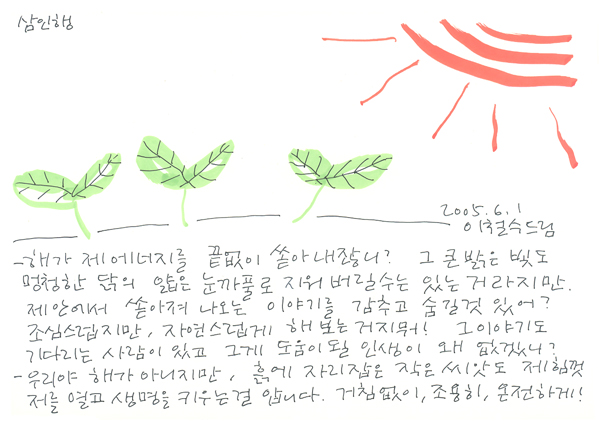 삼인행
2005.6.1
이철수드림
-해가 제 에너지를 끝없이 쏟아내잖니? 그 큰 밝은 빛도
멍청한 닭의 얇은 눈까풀로 지워 버릴수는 있는 거라지만.
제안에서 쏟아져 나오는 이야기를 감추고 숨길것 있어?
조심스럽지만, 자연스럽게 해 보는거지뭐! 그이야기도
기다리는 사람이 있고 그게 도움이 될 인생이 왜 없겠니?
-우리야 해가 아니지만, 흙에 자리잡은 작은 씨앗도 제힘껏
저를 열고 생명을 키우는걸 압니다. 거침없이, 조용히, 온전하게!